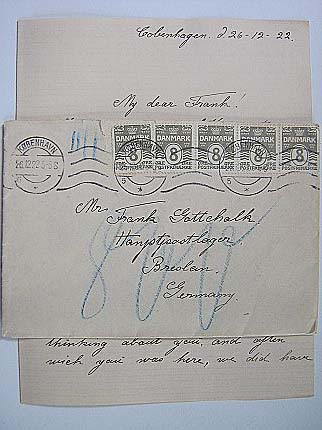 Cobenhagen. d 26-12-22.
My dear Frank!
KØBENHAVN
DANMARK DANMARK DANMARK DANMARK DANMARK
8 8 8 8 8
POSTFRIMÆRKE POSTFRIMÆRKE POSTFRIMÆRKE POSTFRIMÆRKE POSTFRIMÆRKE
Mr
Frank Gottchalk
Hauptpostlager
Breslau.
Germany.
thinking about you, and often
wich you was here, we did have